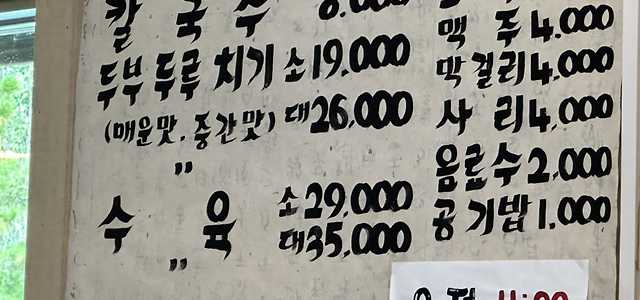 칼 국 수 8.000
두부 두루 치기 소 19.000
(매운맛. 중간맛) 대 26.000
수 육 소 29.000
〃 대 35.000
맥 주 4.000
막걸리 4.000
사 리 4.000
음료수 2.000
공기밥 1.000